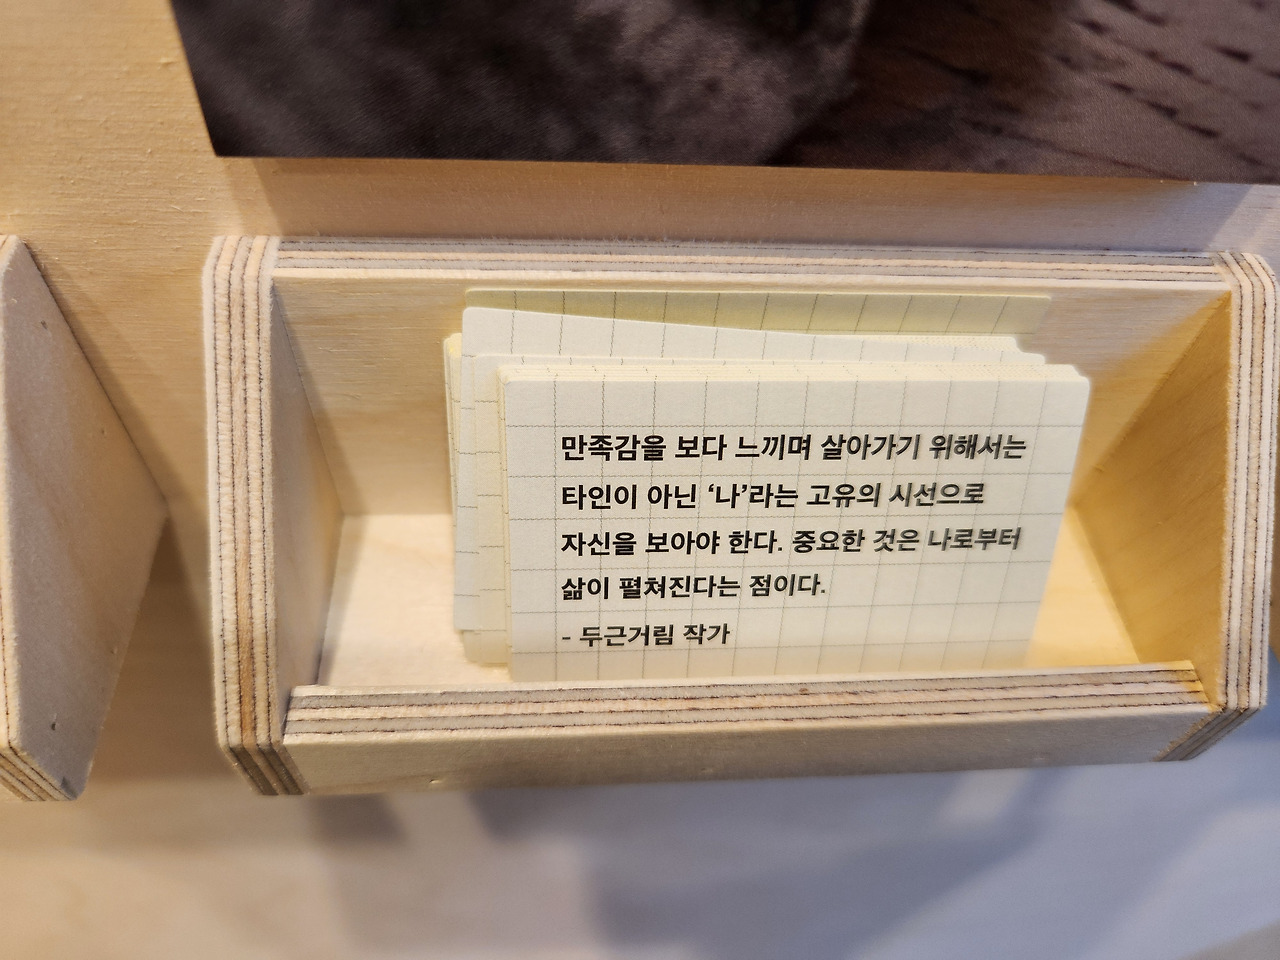 만족감을 보다 느끼며 살아가기 위해서는
타인이 아닌 ‘나’라는 고유의 시선으로
자신을 보아야 한다. 중요한 것은 나로부터
삶이 펼쳐진다는 점이다.
- 두근거림 작가